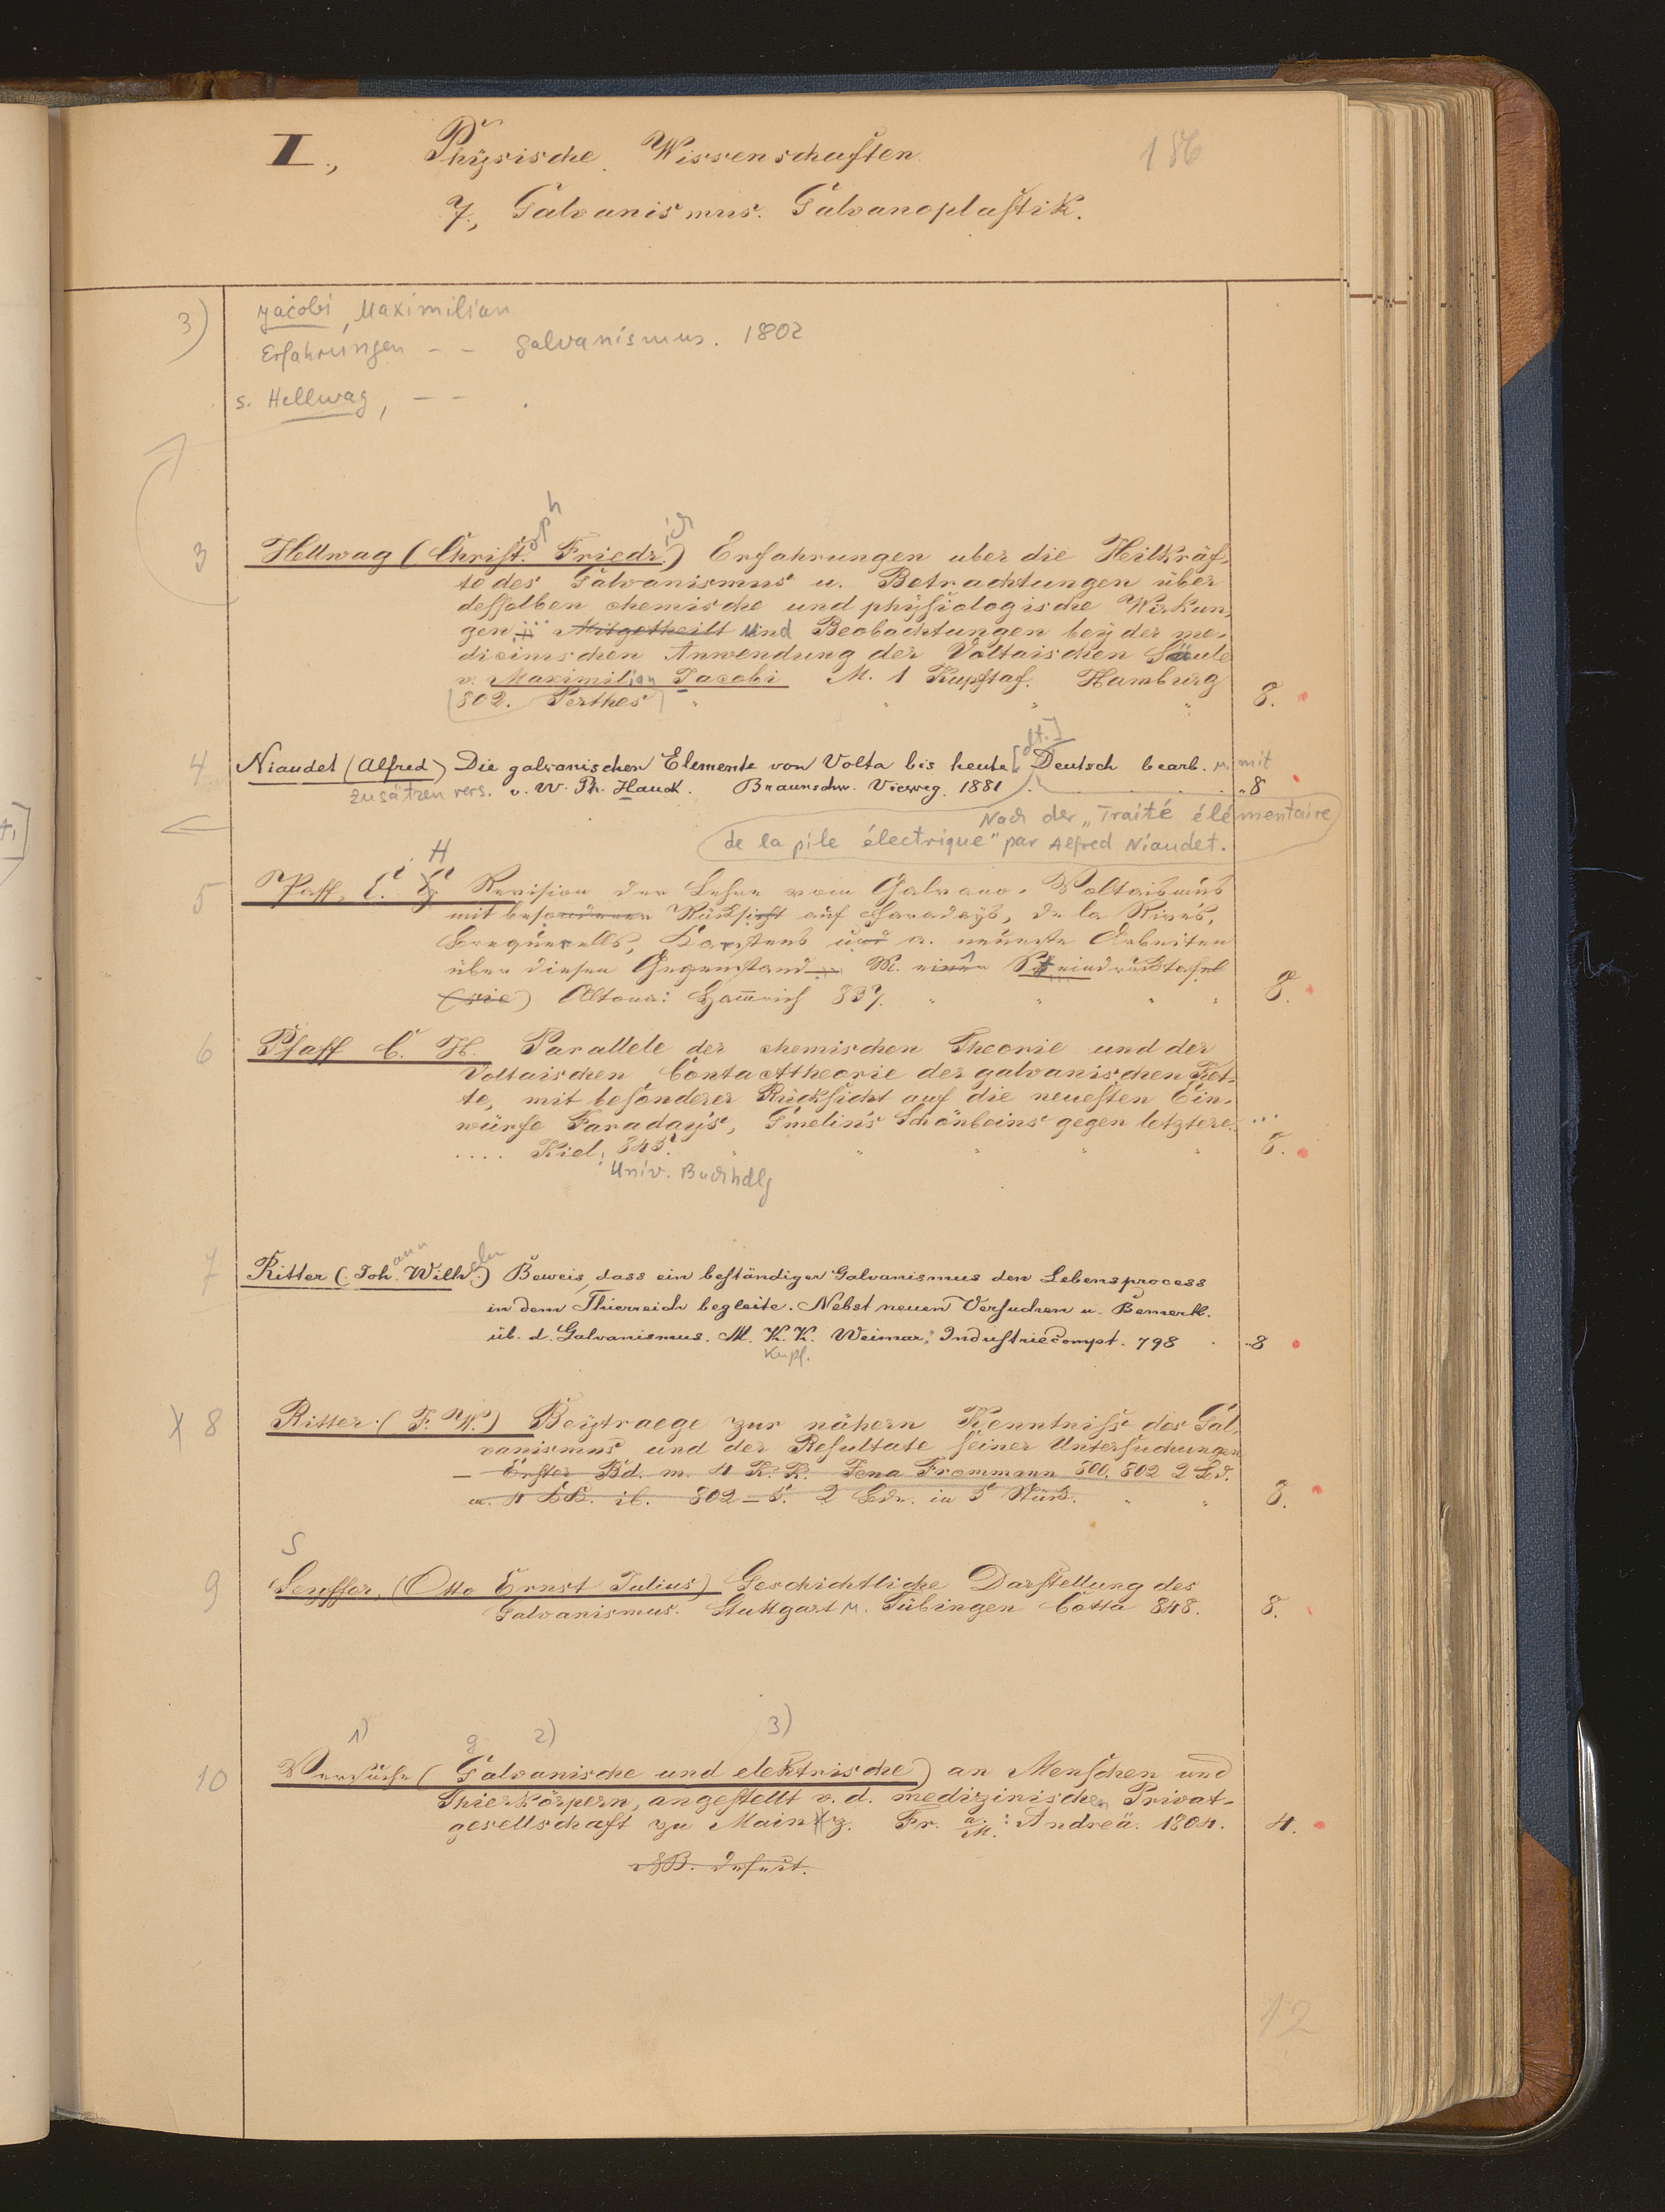 I., Physische Wissenschaften.
186
7., Galvanismus. Galvanoplastik.
3) Jacobi, Maximilian
Erfahrungen – – Galvanismus. 1802
s. Hellwag, – – .
3 Hellwag (Christ.oph Friedr.ich) Erfahrungen uber die Heilkräf-
te des Galvanismus u. Betrachtungen über
desselben chemische und physiologische Wirkun-
gen Mitgetheilt und Beobachtungen bey der me-
dicinischen Anwendung der Voltaischen Säule
v. Maximilian Jacobi M. 1 Kupftaf. Hamburg
802. Perthes 8.
4 Niaudet (Alfred) Die galvanischen Elemente von Volta bis heute [dt.] Deutsch bearb. u. mit
Zusätzen vers. v. W. Ph. Hauck. Braunschw. Vieweg. 1881 8
Nach der „Traité élémentaire
de la pile électrique" par Alfred Niaudet.
H
5 Pfaff, C. Revision der Lehre vom Galvano-Voltaismus
mit besonderer Rücksicht auf Faradays, de la Rives,
Becquerells, Karstens und a. neueste Arbeiten
über diesen Gegenstand M. einer Steindrucktafel
(sic) Altona: Hamerich 837. 8.
6 Pfaff C. H. Parallele der chemischen Theorie und der
Voltaischen Contacttheorie der galvanischen Ket-
te, mit besonderer Rücksicht auf die neuesten Ein-
würfe Faraday's, Gmelin's Schönbeins gegen letztere.
.... Kiel: 845. 8.
Univ. Buchhdlg
7 Ritter (Johann Wilhelm) Beweis, dass ein beständiger Galvanismus den Lebensprocess
in dem Thierreich begleite. Nebst neuen Versuchen u. Bemerk.
üb. d. Galvanismus. M. K. K. Weimar: Industriecompt. 798 8
Kupf.
X 8 Ritter (J. W.) Beytraege zur nähern Kenntniss des Gal-
vanismus und der Resultate seiner Untersuchungen
– Erster Bd. m. 4 K. K. Jena Frommann 800. 802 2 Bd.
m. 4 KK. ib. 802–5. 2 Bde. in 5 Stück. 8.
S
9 Seyffer, (Otto Ernst Julius) Geschichtliche Darstellung des
Galvanismus. Stuttgart u. Tübingen Cotta 848. 8.
1) g 2) 3)
10 Versuche (Galvanische und elektrische) an Menschen und
Thierkörpern, angestellt v. d. medizinischen Privat-
gesellschaft zu Mainz. Fr. a. M.: Andreä. 1804. 4.
NB. defect.
12